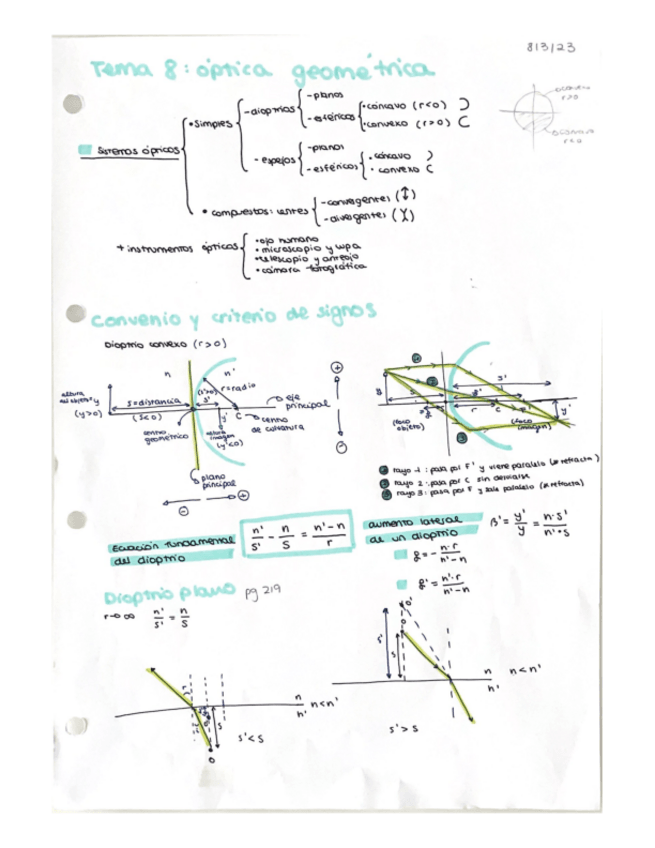 8/3/23
Tema 8: óptica geométrica
Sistemas ópticos
• simples
- dioptrios
- planos
- esféricos
• cóncavo (r<0)
• convexo (r>0)
- espejos
- planos
- esféricos
• cóncavo
• convexo
• compuestos: lentes
- convergentes
- divergentes
+ instrumentos ópticos
• ojo humano
• microscopio y lupa
• telescopio y anteojo
• cámara fotográfica
convenio y criterio de signos
Dioptrio convexo (r>0)
n n'
altura del objeto y
(y>0)
s=distancia
(s<0)
(s'>0)
s'
r=radio
C
eje principal
centro de curvatura
centro geométrico
altura imagen
(y'<0)
y'
plano principal
+
-
- +
1
2
3
y
s
s'
r
C
y'
(foco objeto)
(foco imagen)
1 rayo 1: pasa por F' y viene paralelo (se refracta)
2 rayo 2: pasa por C sin desviarse
3 rayo 3: pasa por F y sale paralelo (se refracta)
Ecuación fundamental del dioptrio
n'/s' - n/s = n'-n/r
aumento lateral de un dioptrio
β' = y'/y = n·s'/n'·s
f = - n·r/n'-n
f' = n'·r/n'-n
Dioptrio plano pg 219
r→∞ n'/s' = n/s
n
n'
n<n'
s
s'<s
O
O'
O
s'
s
n
n'
n<n'
s'>s